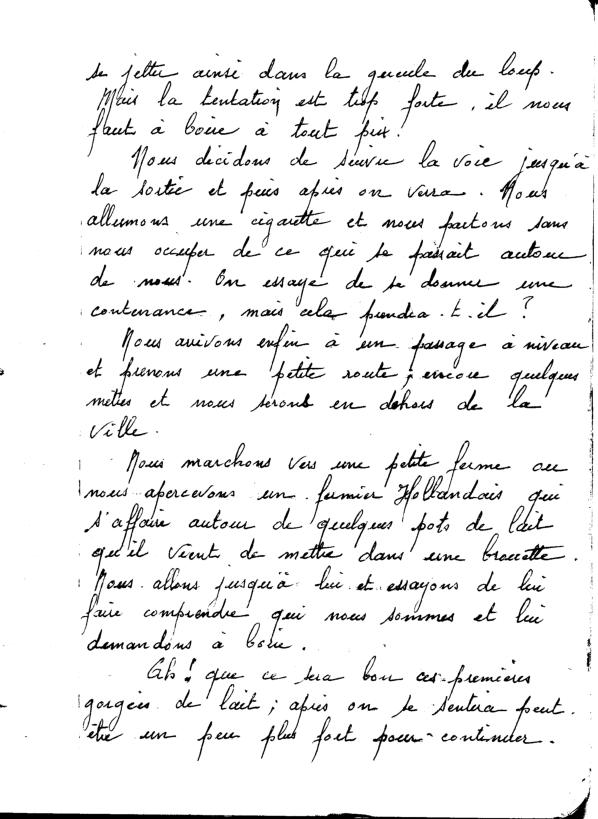 se jetter ainsi dans la gueule du loup.
Mais la tentation est trop forte, il nous
faut à boire à tout prix.
Nous décidons de suivre la voie jusqu'à
la sortie et puis après on verra. Nous
allumons une cigarette et nous partons sans
nous occuper de ce qui se passait autour
de nous. On essaye de se donner une
contenance, mais cela prendra-t-il ?
Nous arrivons enfin à un passage à niveau
et prenons une petite route ; encore quelques
mètres et nous serons en dehors de la
ville.
Nous marchons vers une petite ferme où
nous apercevons un fermier Hollandais qui
s'affaire autour de quelques pots de lait
qu'il vient de mettre dans une brouette.
Nous allons jusqu'à lui et essayons de lui
faire comprendre qui nous sommes et lui
demandons à boire.
Ah ! que ce sera bon ces premières
gorgées de lait ; après on se sentira peut-
être un peu plus fort pour continuer.